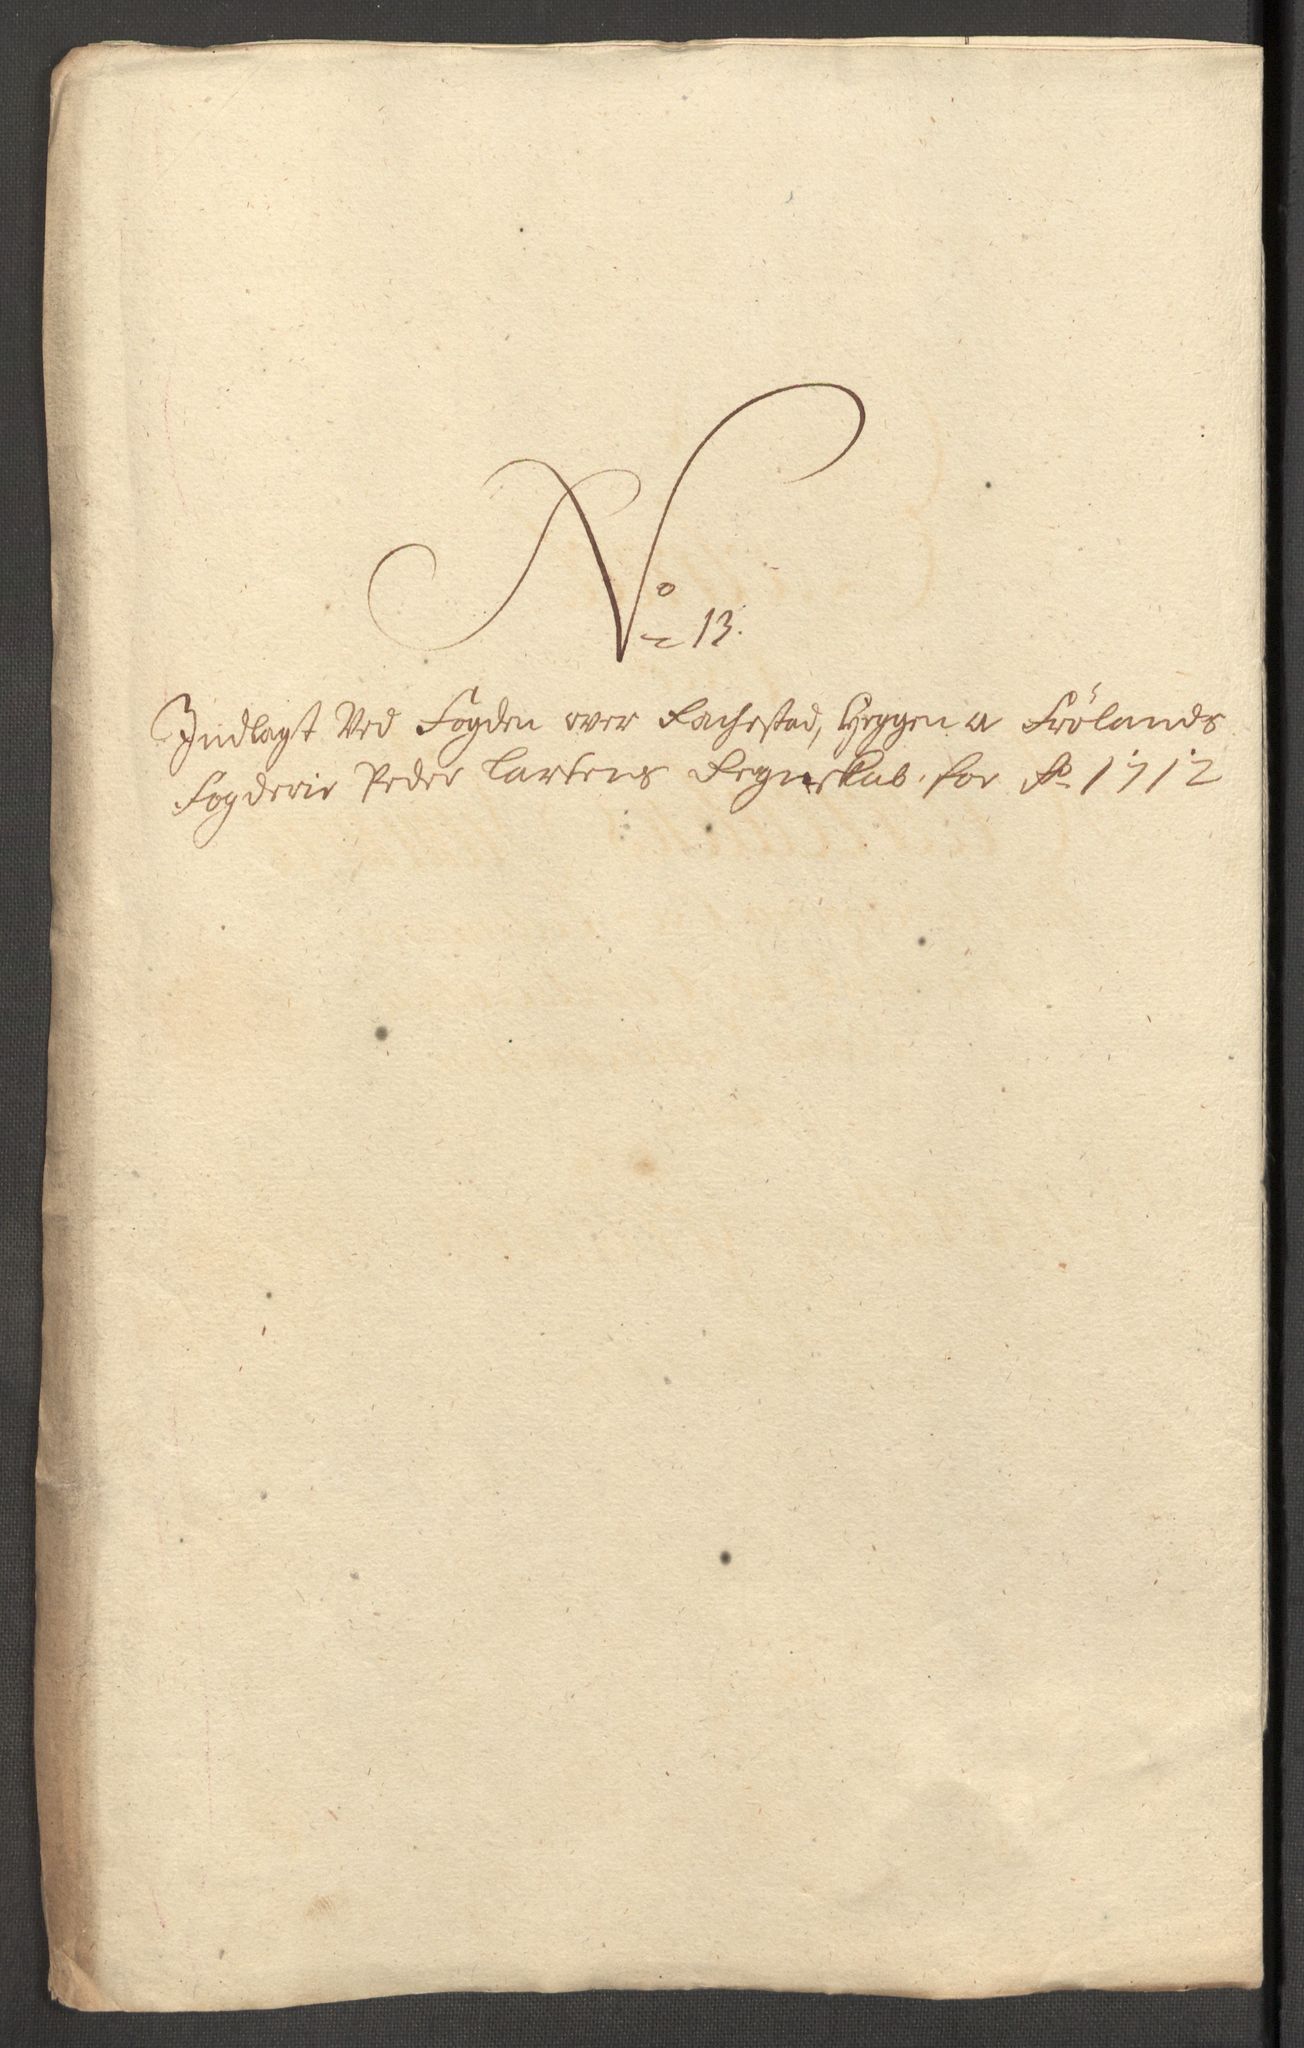 No 13.
Indlagt Ved Fogden over Rachestad, Heggen a Frölands
Fogderie Peder Carlens Regnskab for Ao 1712